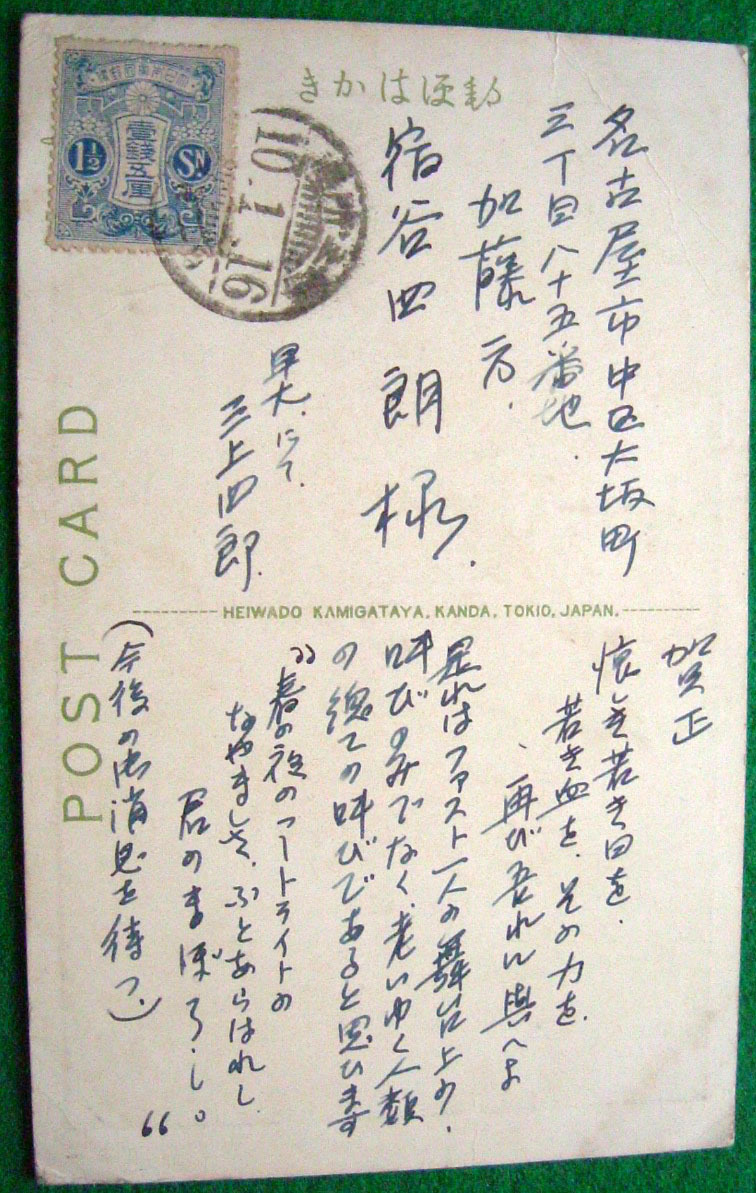 きかは便郵
大日本帝國郵便
壹錢五厘
1½
SN
10.1.16
POST CARD
名古屋市中区大坂町
三丁目八十五番地
加藤方.
宿谷四朗様.
早大.にて.
三上四郎.
HEIWADO KAMIGATAYA, KANDA, TOKIO, JAPAN.
賀正
懐しき若き日を.
若き血を、その力を.
、再び吾れに與へよ
是れはファスト一人の舞台上の.
叫びのみでなく、老いゆく人類
の總ての叫びであると思ひます
〝春の夜のフートライトの
なやましさ、ふとあらはれし.
君のまぼろし。〟
(今後の御消息を待つ.)